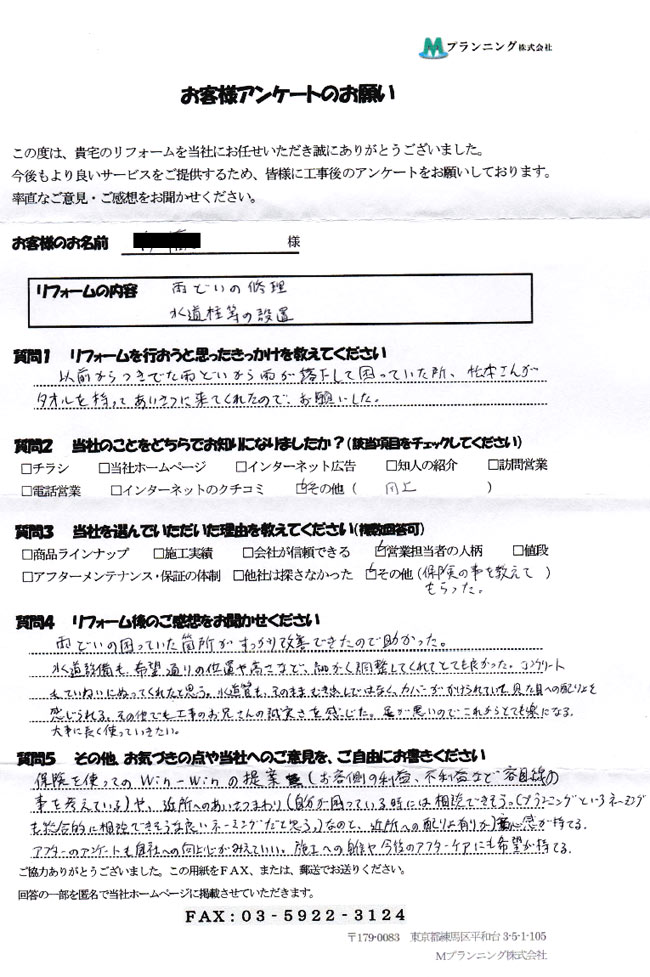 Mプランニング株式会社
お客様アンケートのお願い
この度は、貴宅のリフォームを当社にお任せいただき誠にありがとうございました。
今後もより良いサービスをご提供するため、皆様に工事後のアンケートをお願いしております。
率直なご意見・ご感想をお聞かせください。
お客様のお名前 様
リフォームの内容 雨どいの修理
水道栓等の設置
質問1 リフォームを行おうと思ったきっかけを教えてください
以前から雨どいから雨が落下して困っていた所、松本さんが
タオルを持ってあいさつに来てくれたので、お願いした。
質問2 当社のことをどちらでお知りになりましたか?(該当項目をチェックしてください)
□チラシ □当社ホームページ □インターネット広告 □知人の紹介 □訪問営業
□電話営業 □インターネットのクチコミ ☑その他( 同上 )
質問3 当社を選んでいただいた理由を教えてください(複数回答可)
□商品ラインナップ □施工実績 □会社が信頼できる ☑営業担当者の人柄 □値段
□アフターメンテナンス・保証の体制 □他社は探さなかった ☑その他(保険の事を教えて )
もらった。
質問4 リフォーム後のご感想をお聞かせください
雨どいの困っていた箇所がすっかり改善できたので助かった。
水道設備も、希望通りの位置や高さなど、細かく調整してくれてとても良かった。コンクリート
もていねいにぬってくれたと思う。水道管も、そのままむき出しではなく、カバーがかけられていて見た目への配りょを
感じられる。その他でも工事のお兄さんの誠実さを感じた。足が悪いのでこれからとても楽になる。
大事に長く使っていきたい。
質問5 その他、お気づきの点や当社へのご意見を、ご自由にお書きください
保険を使ってのWin-Winの提案(お客側の利益、不利益など客目線の
事を考えている)や、近所へのあいさつまわり(自分が困っている時には相談できそう。(プランニングというネーミング
も総合的に相談できそうな良いネーミングだと思う。)なのと、近所への配りょ有りか)感が持てる。
アフターのアンケートも自社への向上心がみえていい。施工への自信や今後のアフターケアにも希望が持てる。
ご協力ありがとうございました。この用紙をFAX、または、郵送でお送りください。
回答の一部を匿名で当社ホームページに掲載させていただきます。
FAX:03-5922-3124
〒179-0083 東京都練馬区平和台 3-5-1-105
Mプランニング株式会社